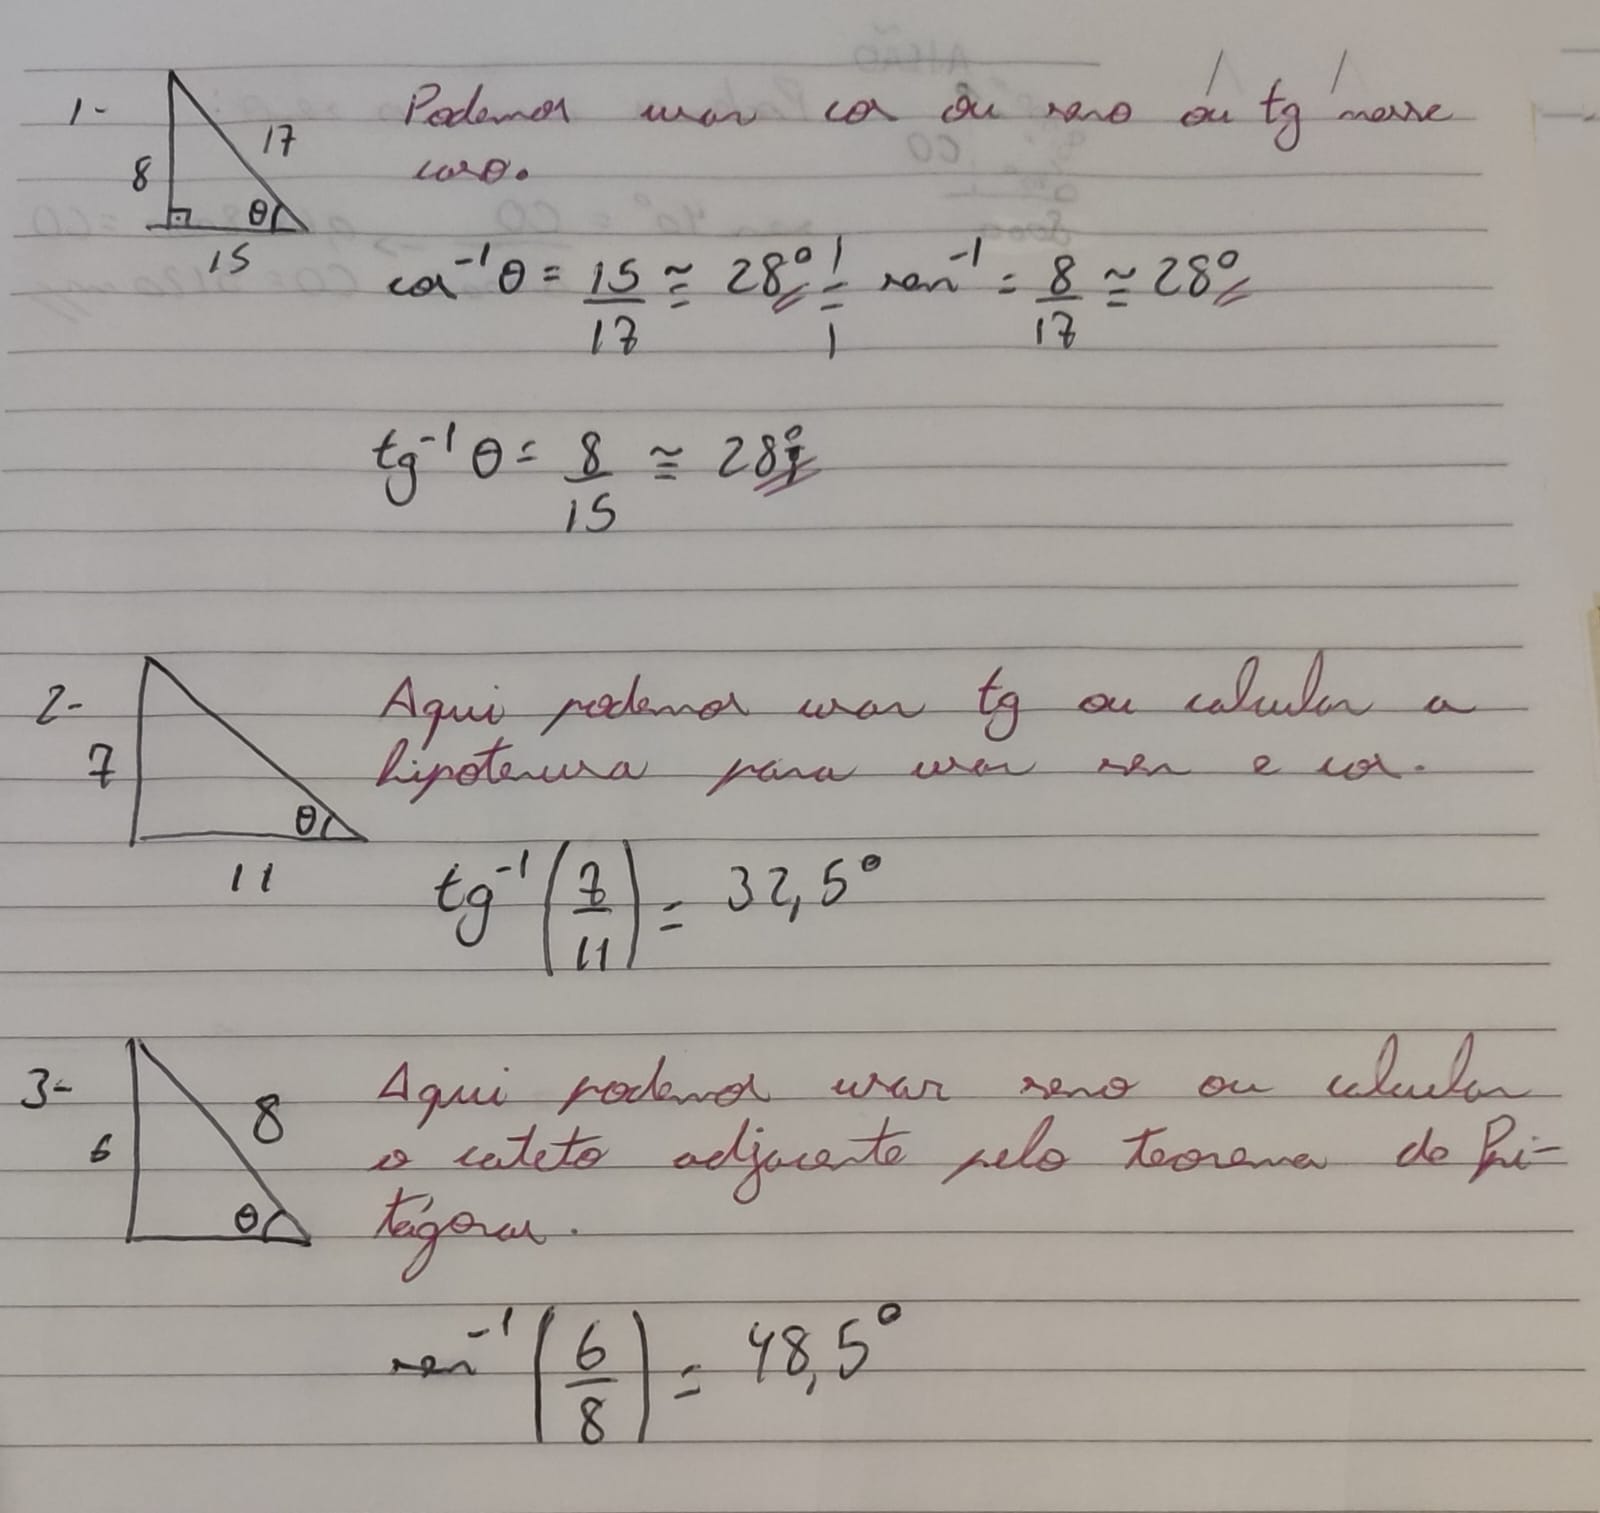 1-
8
17
θ
15
Podemos usar cos ou seno ou tg nesse
caso.
cos⁻¹ θ = 15/17 ≅ 28° sen⁻¹ = 8/17 ≅ 28°
tg⁻¹ θ = 8/15 ≅ 28°
2-
7
θ
11
Aqui podemos usar tg ou calcular a
hipotenusa para usar sen e cos.
tg⁻¹ (7/11) = 32,5°
3-
6
8
θ
Aqui podemos usar seno ou calcular
o cateto adjacente pelo teorema de Pi-
tágoras.
sen⁻¹ (6/8) = 48,5°